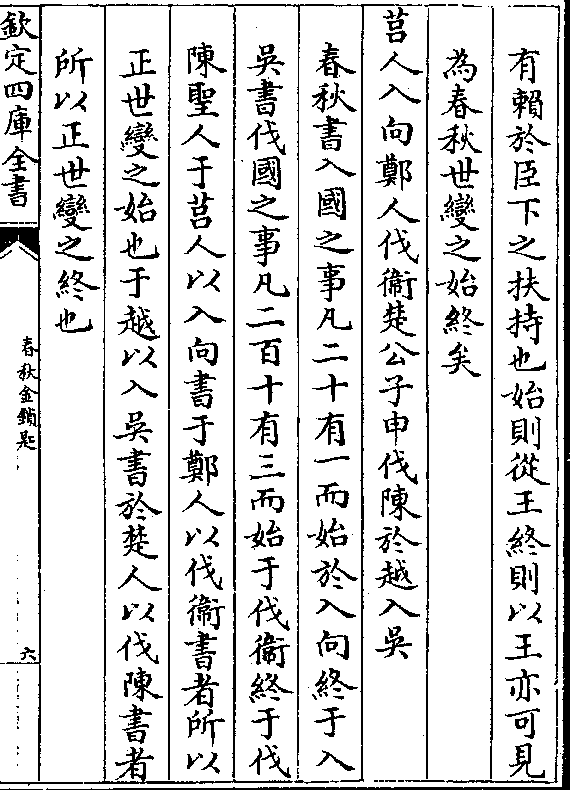 有賴於臣下之扶持也始則從王終則以王亦可見
為春秋世變之始終矣
莒人入向鄭人伐衞楚公子申伐陳於越入吳
春秋書入國之事凡二十有一而始於入向終于入
吳書伐國之事凡二百十有三而始于伐衞終于伐
陳聖人于莒人以入向書于鄭人以伐衞書者所以
正世變之始也于越以入吳書於楚人以伐陳書者
所以正世變之終也
欽定四庫全書
春秋金鎖匙
六